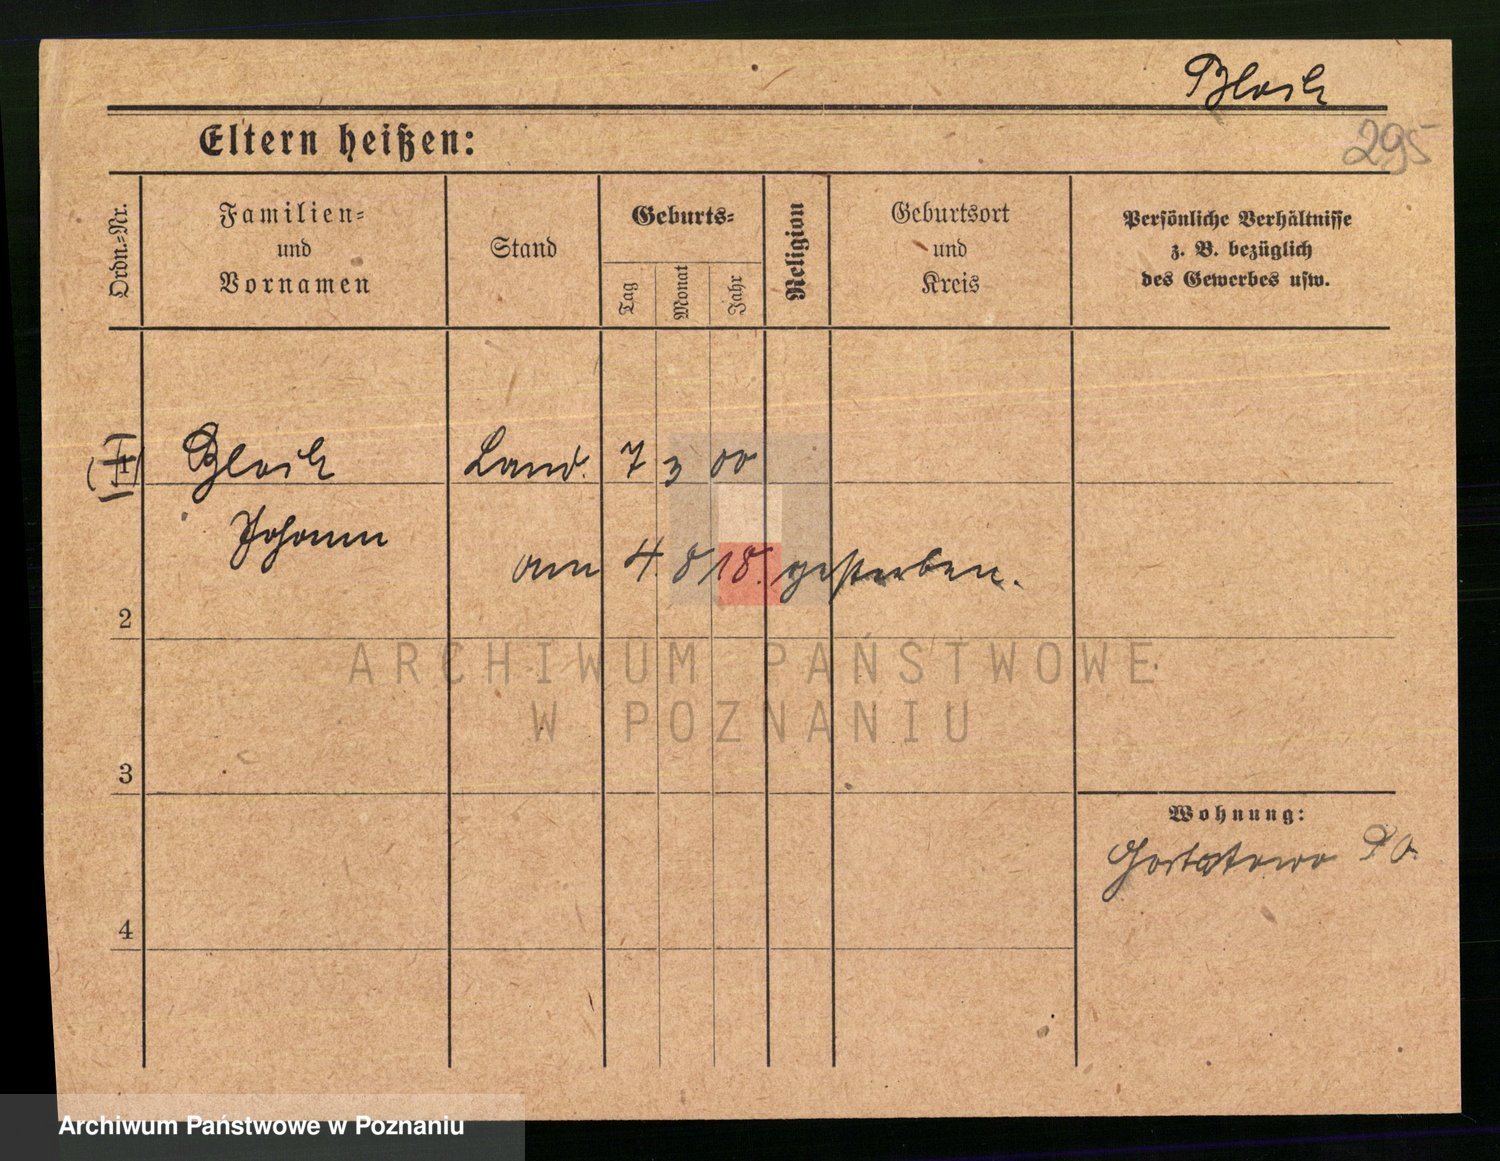 Bloch
295
Eltern heißen:
Ordn.=Nr.
Familien=
und
Vornamen
Stand
Geburts=
Tag
Monat
Jahr
Religion
Geburtsort
und
Kreis
Persönliche Verhältnisse
z. B. bezüglich
des Gewerbes usw.
1 Land. 7 3 00
Johann
am 4. 8 18. gestorben.
2
ARCHIWUM PAŃSTWOWE
W POZNANIU
3
Wohnung:
4
Archiwum Państwowe w Poznaniu